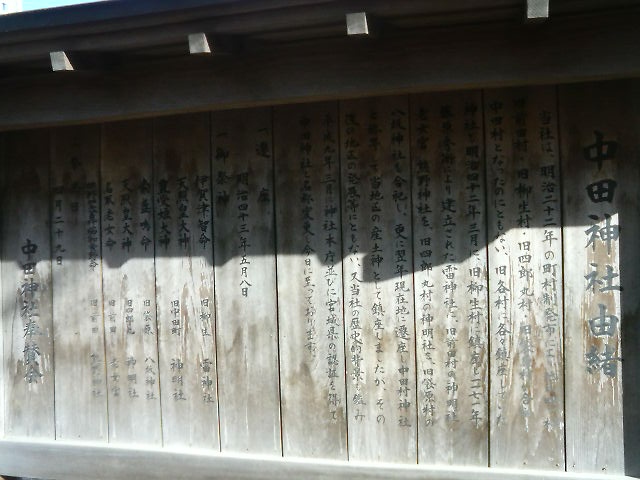 中田神社由緒
当社は、明治二十二年の町村制発布に
旧前田村・旧柳生村・旧四郎丸村・旧
中田村となったのにともない、旧各村に各々鎮座していた
神社を明治四十二年三月に、旧柳生村に鎮座し一二七一年
藤原秀衡により建立された雷神社に、旧前田村の神明社
老女宮、熊野神社を、旧四郎丸村の神明社を、旧袋原村の
八坂神社を合祀し、更に翌年現在地に遷座し中田村神社
と称号して当地区の産土神として鎮座しましたが、その
後の地区の発展等にともない、又当社の歴史的背景を鑑み
平成九年三月に神社本庁並びに宮城県の認証を得て
中田神社と名称変更し今日に至っております。
一 遷座
明治四十三年五月八日
一 御祭神
伊賀津智命 旧柳生 雷神社
天照皇大神 旧中田町 神明社
豊受姫大神
素盞嗚命 旧袋原 八坂神社
天照皇大神 旧四郎丸 神明社
名取老女命 旧前田 老女宮
旧前田
四月二十九日
中田神社奉賛会